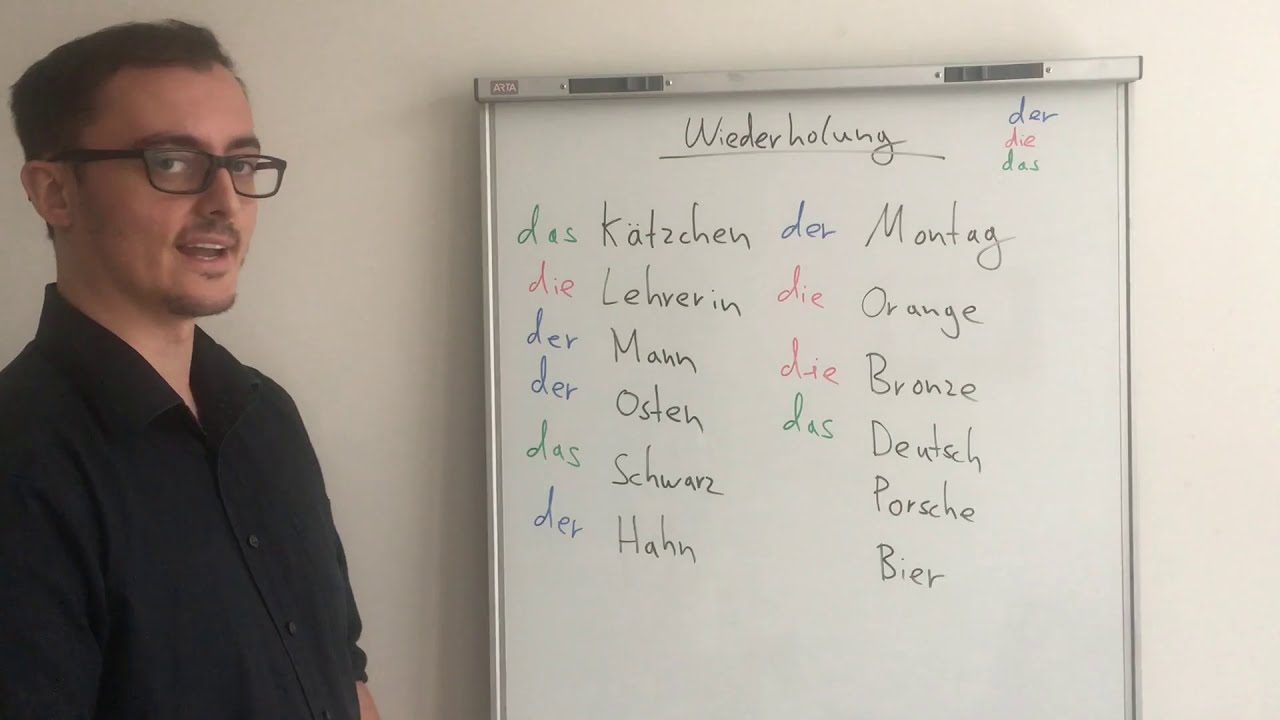 ARTA
Wiederholung
der
die
das
das Kätzchen
die Lehrerin
der Mann
der Osten
das Schwarz
der Hahn
der Montag
die Orange
die Bronze
das Deutsch
Porsche
Bier